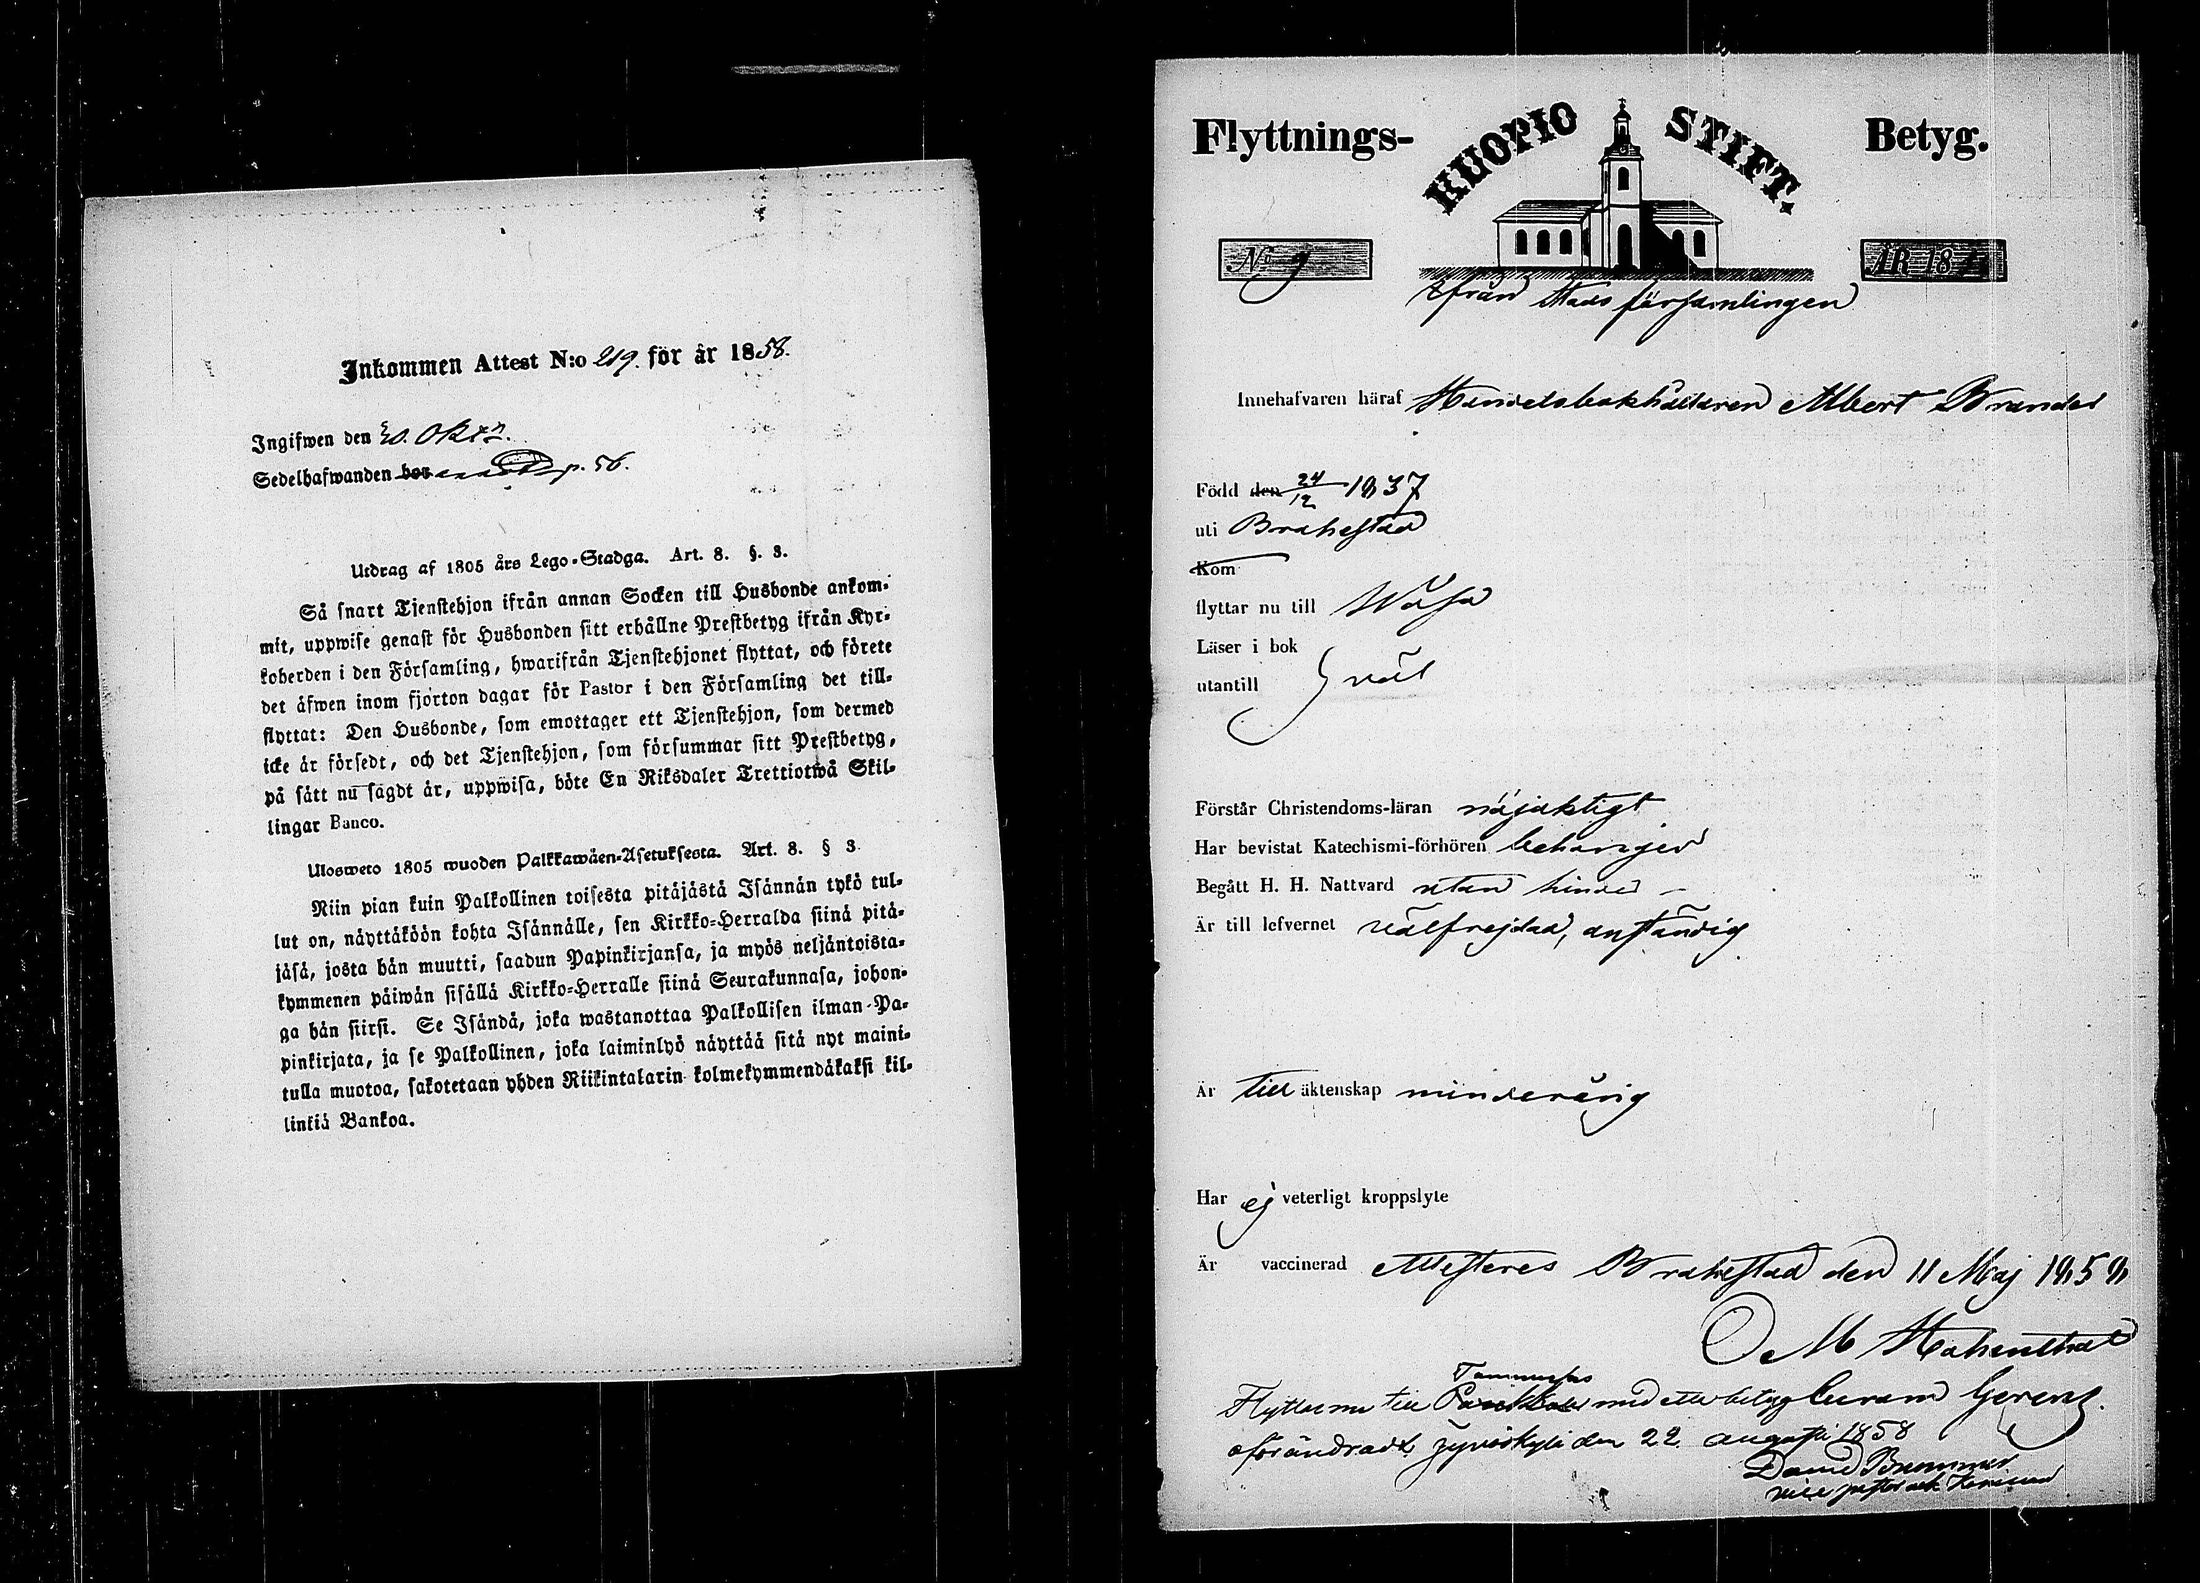 Inkommen Attest N:o 219. för år 1858.
Ingifwen den 30. Oktr.
Sedelhafwanden bor p. 56.
Utdrag af 1805 års Lego-Stadga. Art. 8. §. 3.
Så snart Tjenstehjon ifrån annan Socken till Husbonde ankom-
mit, uppwise genast för Husbonden sitt erhållne Prestbetyg ifrån Kyr-
koherden i den Församling, hwarifrån Tjenstehjonet flyttat, och förete
det äfwen inom fjorton dagar för Pastor i den Församling det till-
flyttat: Den Husbonde, som emottager ett Tjenstehjon, som dermed
icke är försedt, och det Tjenstehjon, som försummar sitt Prestbetyg,
på sätt nu sagdt är, uppwisa, böte En Riksdaler Trettiotwå Skil-
lingar Banco.
Ulosweto 1805 wuoden Palkkawäen-Asetuksesta. Art. 8. § 3
Niin pian kuin Palkollinen toisesta pitäjästä Isännän tykö tul-
lut on, näyttäköön kohta Isännälle, sen Kirkko-Herralda siinä pitä-
jäsä, josta hän muutti, saadun Papinkirjansa, ja myös neljäntoista-
kymmenen päiwän sisällä Kirkko-Herralle siinä Seurakunnasa, johon-
ga hän siirsi. Se Isändä, joka wastanottaa Palkollisen ilman Pa-
pinkirjata, ja se Palkollinen, joka laiminlyö näyttää sitä nyt maini-
tulla muotoa, sakotetaan yhden Riikintalarin kolmekymmendäkaksi kil-
linkiä Bankoa.
Flyttnings- KUOPIO STIFT. Betyg.
No 9 ÅR 18
ifrån Stads församlingen
Innehafvaren häraf Handelsbokhållaren Albert Brander
Född den 24/12 1837
uti Brahestad
Kom
flyttar nu till Wasa
Läser i bok
utantill väl
Förstår Christendoms-läran nöjaktigt
Har bevistat Katechismi-förhören behörigen
Begått H. H. Nattvard utan hinder
Är till lefvernet välfrejdad, anständig
Är till äktenskap minderårig
Har ej veterligt kroppslyte
Är vaccinerad Attesteres Brahestad den 11 Maj 1858
Tammerfors
Flyttar nu till med detta betyg Curam Gerens.
oförändradt Jyväskylä den 22 augusti 1858